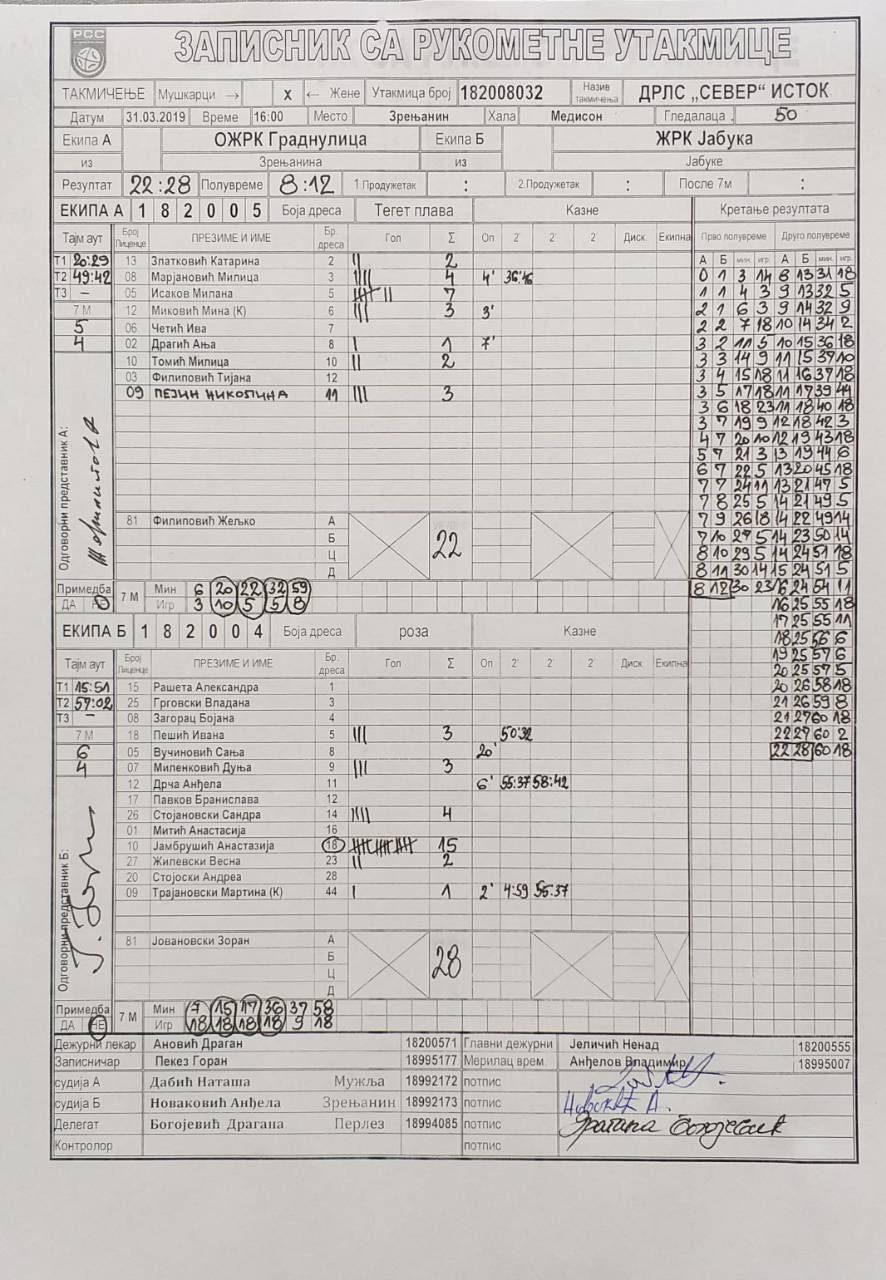 РСС
ЗАПИСНИК СА РУКОМЕТНЕ УТАКМИЦЕ
ТАКМИЧЕЊЕ Мушкарци → x ← Жене Утакмица број 182008032 Назив такмичења ДРЛС „СЕВЕР“ ИСТОК
Датум 31.03.2019 Време 16:00 Место Зрењанин Хала Медисон Гледалаца 50
Екипа А ОЖРК Граднулица Екипа Б ЖРК Јабука
из Зрењанина из Јабуке
Резултат 22:28 Полувреме 8:12 1.Продужетак : 2.Продужетак : После 7м :
ЕКИПА А 1 8 2 0 0 5 Боја дреса Тегет плава Казне Кретање резултата
Тајм аут Број Лиценце ПРЕЗИМЕ И ИМЕ Бр. дреса Гол Σ Оп 2' 2' 2' Диск. Екипна Прво полувреме Друго полувреме
А Б мин. игр. А Б мин. игр.
Т1 20:29 13 Златковић Катарина 2 || 2
0 1 3 14 6 13 31 18
Т2 49:42 08 Марјановић Милица 3 |||| 4 4' 36:16
1 1 4 3 9 13 32 5
Т3 – 05 Исаков Милана 5 7
2 1 6 3 9 14 32 9
7 М 12 Миковић Мина (К) 6 ||| 3 3'
2 2 7 18 10 14 34 2
5 06 Четић Ива 7
3 2 11 5 10 15 36 18
4 02 Драгић Ања 8 | 1 7'
3 3 14 9 11 15 37 10
10 Томић Милица 10 || 2
3 4 15 18 11 16 37 18
03 Филиповић Тијана 12
3 5 17 18 11 17 39 44
09 ПЕЈИН НИКОЛИНА 11 ||| 3
3 6 18 23 11 18 40 18
3 7 19 9 12 18 42 3
4 7 20 10 12 19 43 18
5 7 21 3 13 19 44 6
6 7 22 5 13 20 45 18
7 7 24 11 13 21 47 5
7 8 25 5 14 21 49 5
Одговорни представник А:
81 Филиповић Жељко А Б Ц Д 22
7 9 26 18 14 22 49 14
7 10 27 5 14 23 50 14
8 10 29 5 14 24 51 18
8 11 30 14 15 24 51 5
8 12 30 23 16 24 54 11
Примедба 7 М Мин 6 20 22 32 59
ДА НЕ Игр 3 10 5 5 8
16 25 55 18
17 25 55 11
18 25 56 6
19 25 57 6
20 25 57 5
20 26 58 18
21 26 59 8
21 27 60 18
22 27 60 2
22 28 60 18
ЕКИПА Б 1 8 2 0 0 4 Боја дреса роза Казне
Тајм аут Број Лиценце ПРЕЗИМЕ И ИМЕ Бр. дреса Гол Σ Оп 2' 2' 2' Диск. Екипна
Т1 15:51 15 Рашета Александра 1
Т2 57:02 25 Грговски Владана 3
Т3 – 08 Загорац Бојана 4
7 М 18 Пешић Ивана 5 ||| 3 50:32
6 05 Вучиновић Сања 8 20'
4 07 Миленковић Дуња 9 ||| 3
12 Дрча Анђела 11 6' 55:37 58:42
17 Павков Бранислава 12
26 Стојановски Сандра 14 |||| 4
01 Митић Анастасија 16
10 Јамбрушић Анастазија 18 15
27 Жилевски Весна 23 || 2
20 Стојоски Андреа 28
09 Трајановски Мартина (К) 44 | 1 2' 4:59 55:37
Одговорни представник Б:
81 Јовановски Зоран А Б Ц Д 28
Примедба 7 М Мин 7 15 17 36 37 58
ДА НЕ Игр 18 18 18 18 9 18
Дежурни лекар Ановић Драган 18200571 Главни дежурни Јеличић Ненад 18200555
Записничар Пекез Горан 18995177 Мерилац врем. Анђелов Владимир 18995007
судија А Дабић Наташа Мужља 18992172 потпис
судија Б Новаковић Анђела Зрењанин 18992173 потпис
Делегат Богојевић Драгана Перлез 18994085 потпис Драгана Богојевић
Контролор потпис